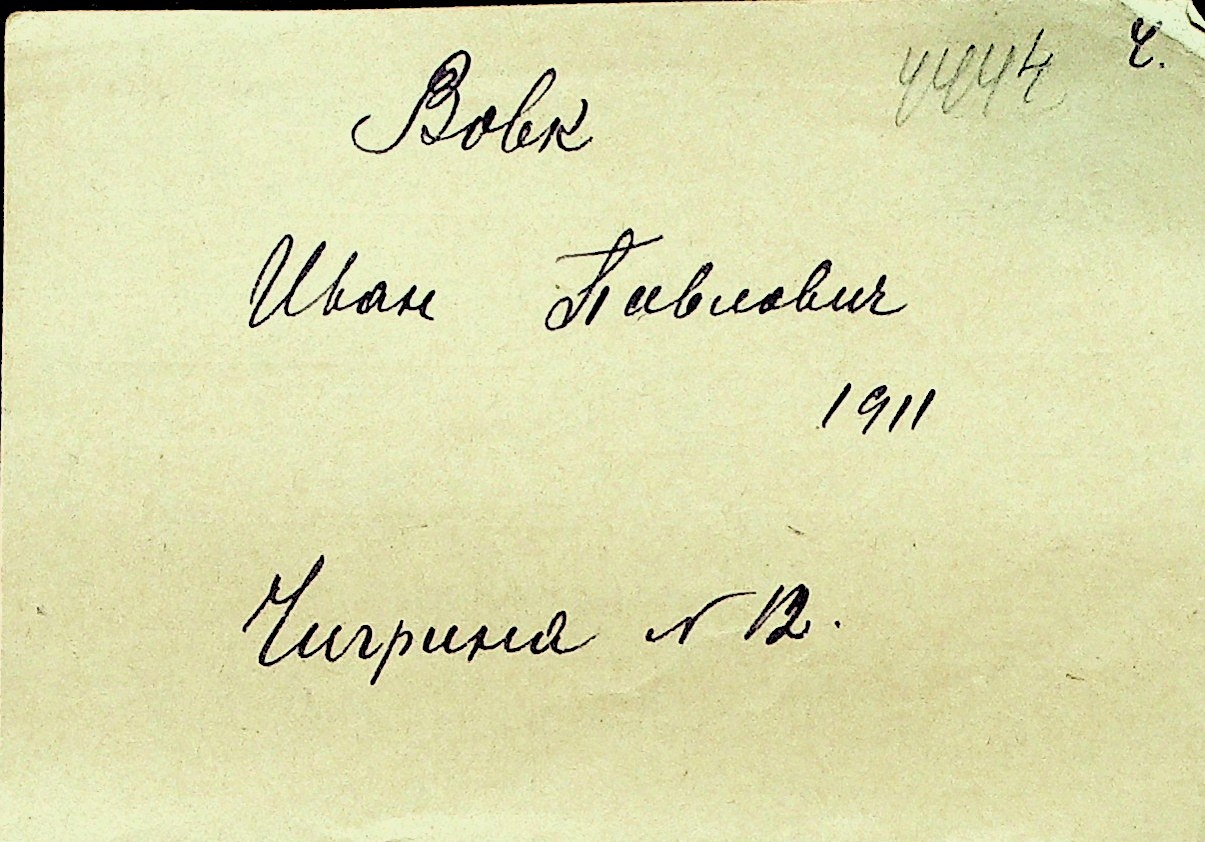 4444 Ч.
Вовк
Иван Павлович
1911
Чигрина № 12.